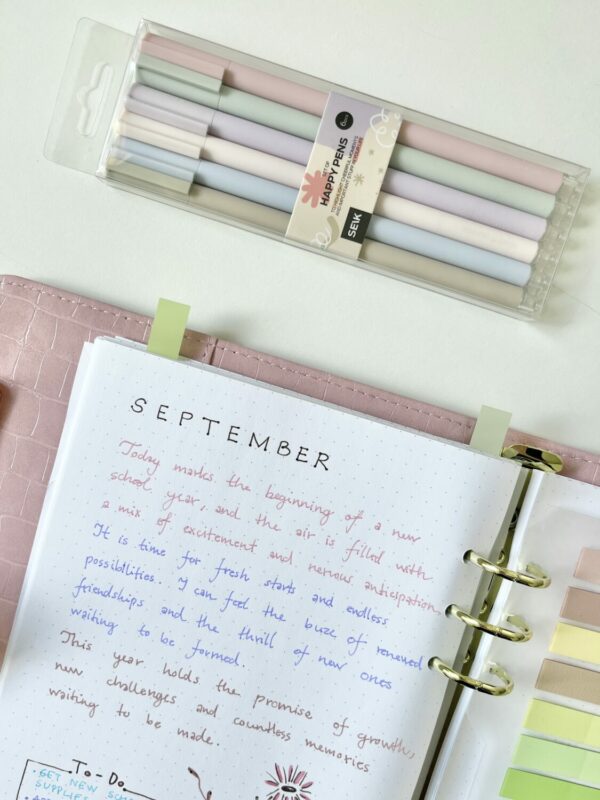 SET OF
HAPPY PENS
6 PCS
SEIK
SEPTEMBER
Today marks the beginning of a new
school year, and the air is filled with
a mix of excitement and nervous anticipation
It is time for fresh starts and endless
possibilities. I can feel the buzz of renewed
friendships and the thrill of new ones
waiting to be formed.
This year holds the promise of growth,
new challenges and countless memories
waiting to be made.
To-Do
· GET NEW SCHO
SUPPLIES